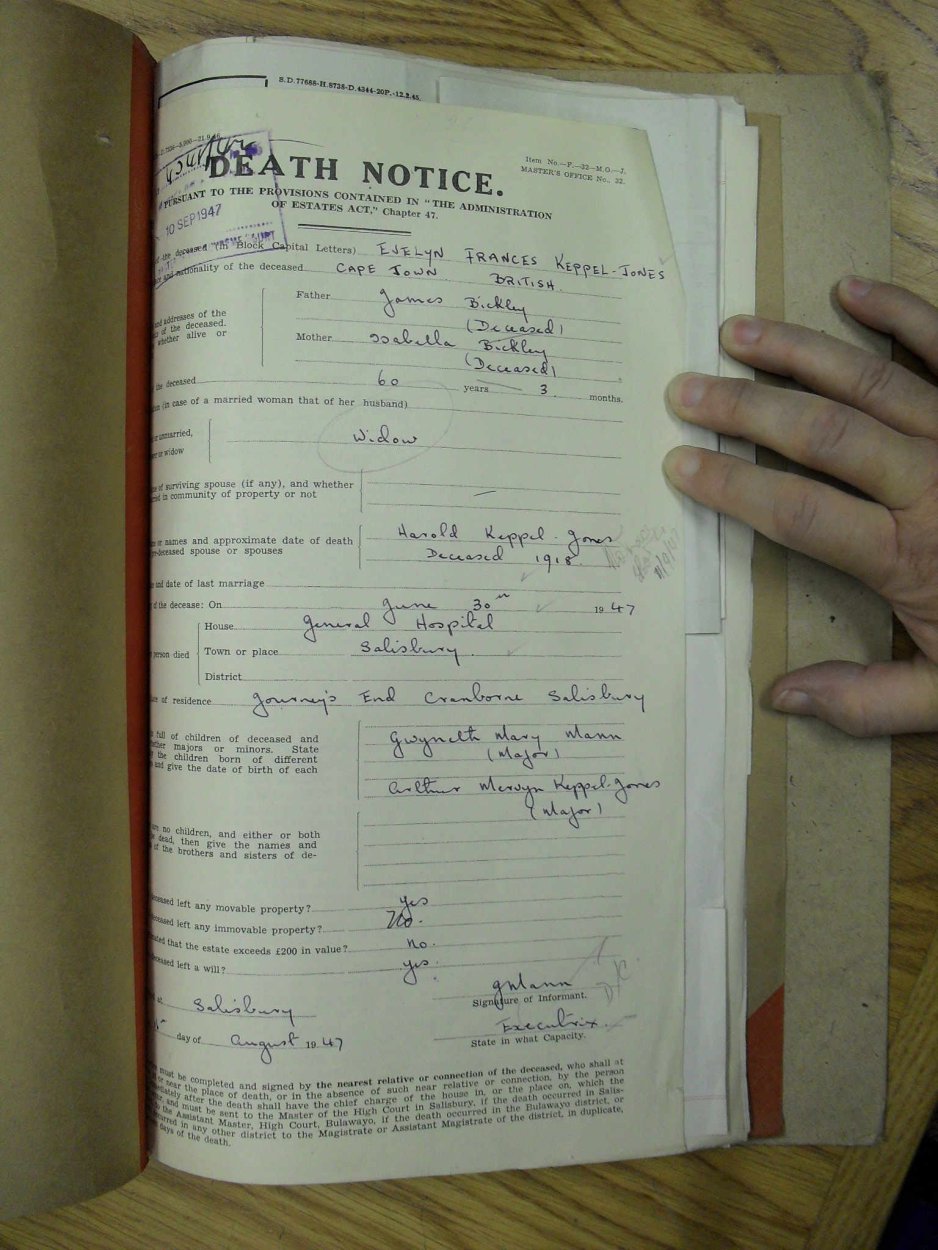 S.D.77688-H.8738-D.4344-20P.-12.2.45.
Item No.—F.—32—M.O.—J.
MASTER'S OFFICE No., 32.
DEATH NOTICE.
PURSUANT TO THE PROVISIONS CONTAINED IN "THE ADMINISTRATION
OF ESTATES ACT," Chapter 47.
10 SEP 1947
of the deceased (in Block Capital Letters) EVELYN FRANCES KEPPEL-JONES
and nationality of the deceased CAPE TOWN BRITISH.
and addresses of the
of the deceased.
whether alive or
Father James Bickley
(Deceased)
Mother Isabella Bickley
(Deceased)
the deceased 60 years 3 months.
(in case of a married woman that of her husband)
or unmarried,
or widow
Widow
of surviving spouse (if any), and whether
in community of property or not
—
or names and approximate date of death
pre-deceased spouse or spouses
Harold Keppel-Jones
Deceased 1918.
and date of last marriage
of the decease: On June 30th 1947
person died
House General Hospital
Town or place Salisbury.
District
of residence Journey's End Cranborne Salisbury
full of children of deceased and
whether majors or minors. State
the children born of different
and give the date of birth of each
Gwyneth Mary Mann
(Major)
Arthur Mervyn Keppel-Jones
(Major)
are no children, and either or both
dead, then give the names and
of the brothers and sisters of de-
deceased left any movable property? Yes
deceased left any immovable property? No.
that the estate exceeds £200 in value? No.
deceased left a will? Yes.
at Salisbury
GMann
Signature of Informant.
Executrix.
State in what Capacity.
day of August 1947
must be completed and signed by the nearest relative or connection of the deceased, who shall at
or near the place of death, or in the absence of such near relative or connection, by the person
immediately after the death shall have the chief charge of the house in, or the place on, which the
and must be sent to the Master of the High Court in Salisbury, if the death occurred in Salis-
to the Assistant Master, High Court, Bulawayo, if the death occurred in the Bulawayo district, or
occurred in any other district to the Magistrate or Assistant Magistrate of the district, in duplicate,
days of the death.